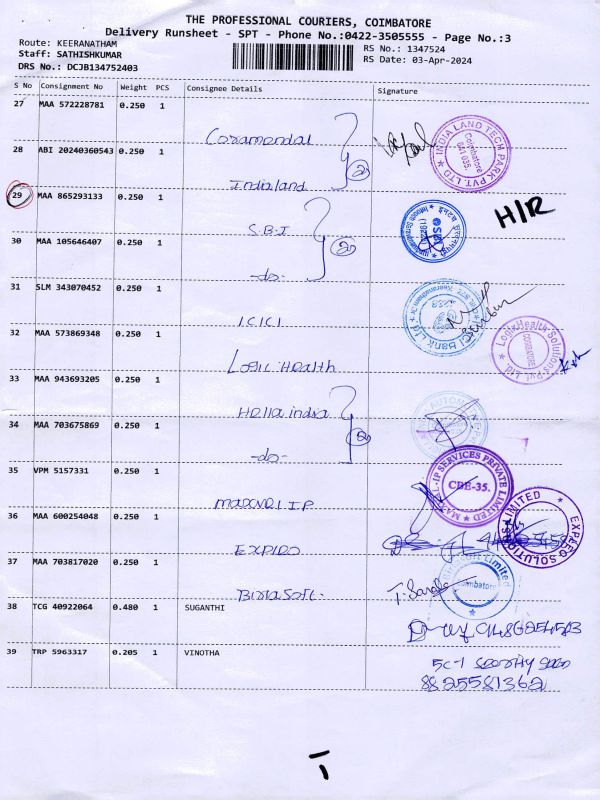 THE PROFESSIONAL COURIERS, COIMBATORE
Delivery Runsheet - SPT - Phone No.:0422-3505555 - Page No.:3
Route: KEERANATHAM
RS No.: 1347524
Staff: SATHISHKUMAR
RS Date: 03-Apr-2024
DRS No.: DCJB134752403
S No Consignment No Weight PCS Consignee Details Signature
27 MAA 572228781 0.250 1
Coramandal
28 ABI 20240360543 0.250 1
Indialand
2
INDIA LAND TECH PARK PVT. LTD
Coimbatore
641 035.
29 MAA 865293133 0.250 1
S.B.I
H/R
SBI
30 MAA 105646407 0.250 1
-do-
2
31 SLM 343070452 0.250 1
ICICI
32 MAA 573869348 0.250 1
Logic Health
Logix Health Solutions Pvt. Ltd.
COIMBATORE
33 MAA 943693205 0.250 1
Hella india
34 MAA 703675869 0.250 1
-do-
2
35 VPM 5157331 0.250 1
maxval I.P
MAXVAL-IP SERVICES PRIVATE LIMITED
CBE-35.
36 MAA 600254048 0.250 1
EXPLEO
EXPLEO SOLUTIONS LIMITED
37 MAA 703817020 0.250 1
Birlasoft.
Limited
Coimbatore
38 TCG 40922064 0.480 1 SUGANTHI
39 TRP 5963317 0.205 1 VINOTHA
8825581362